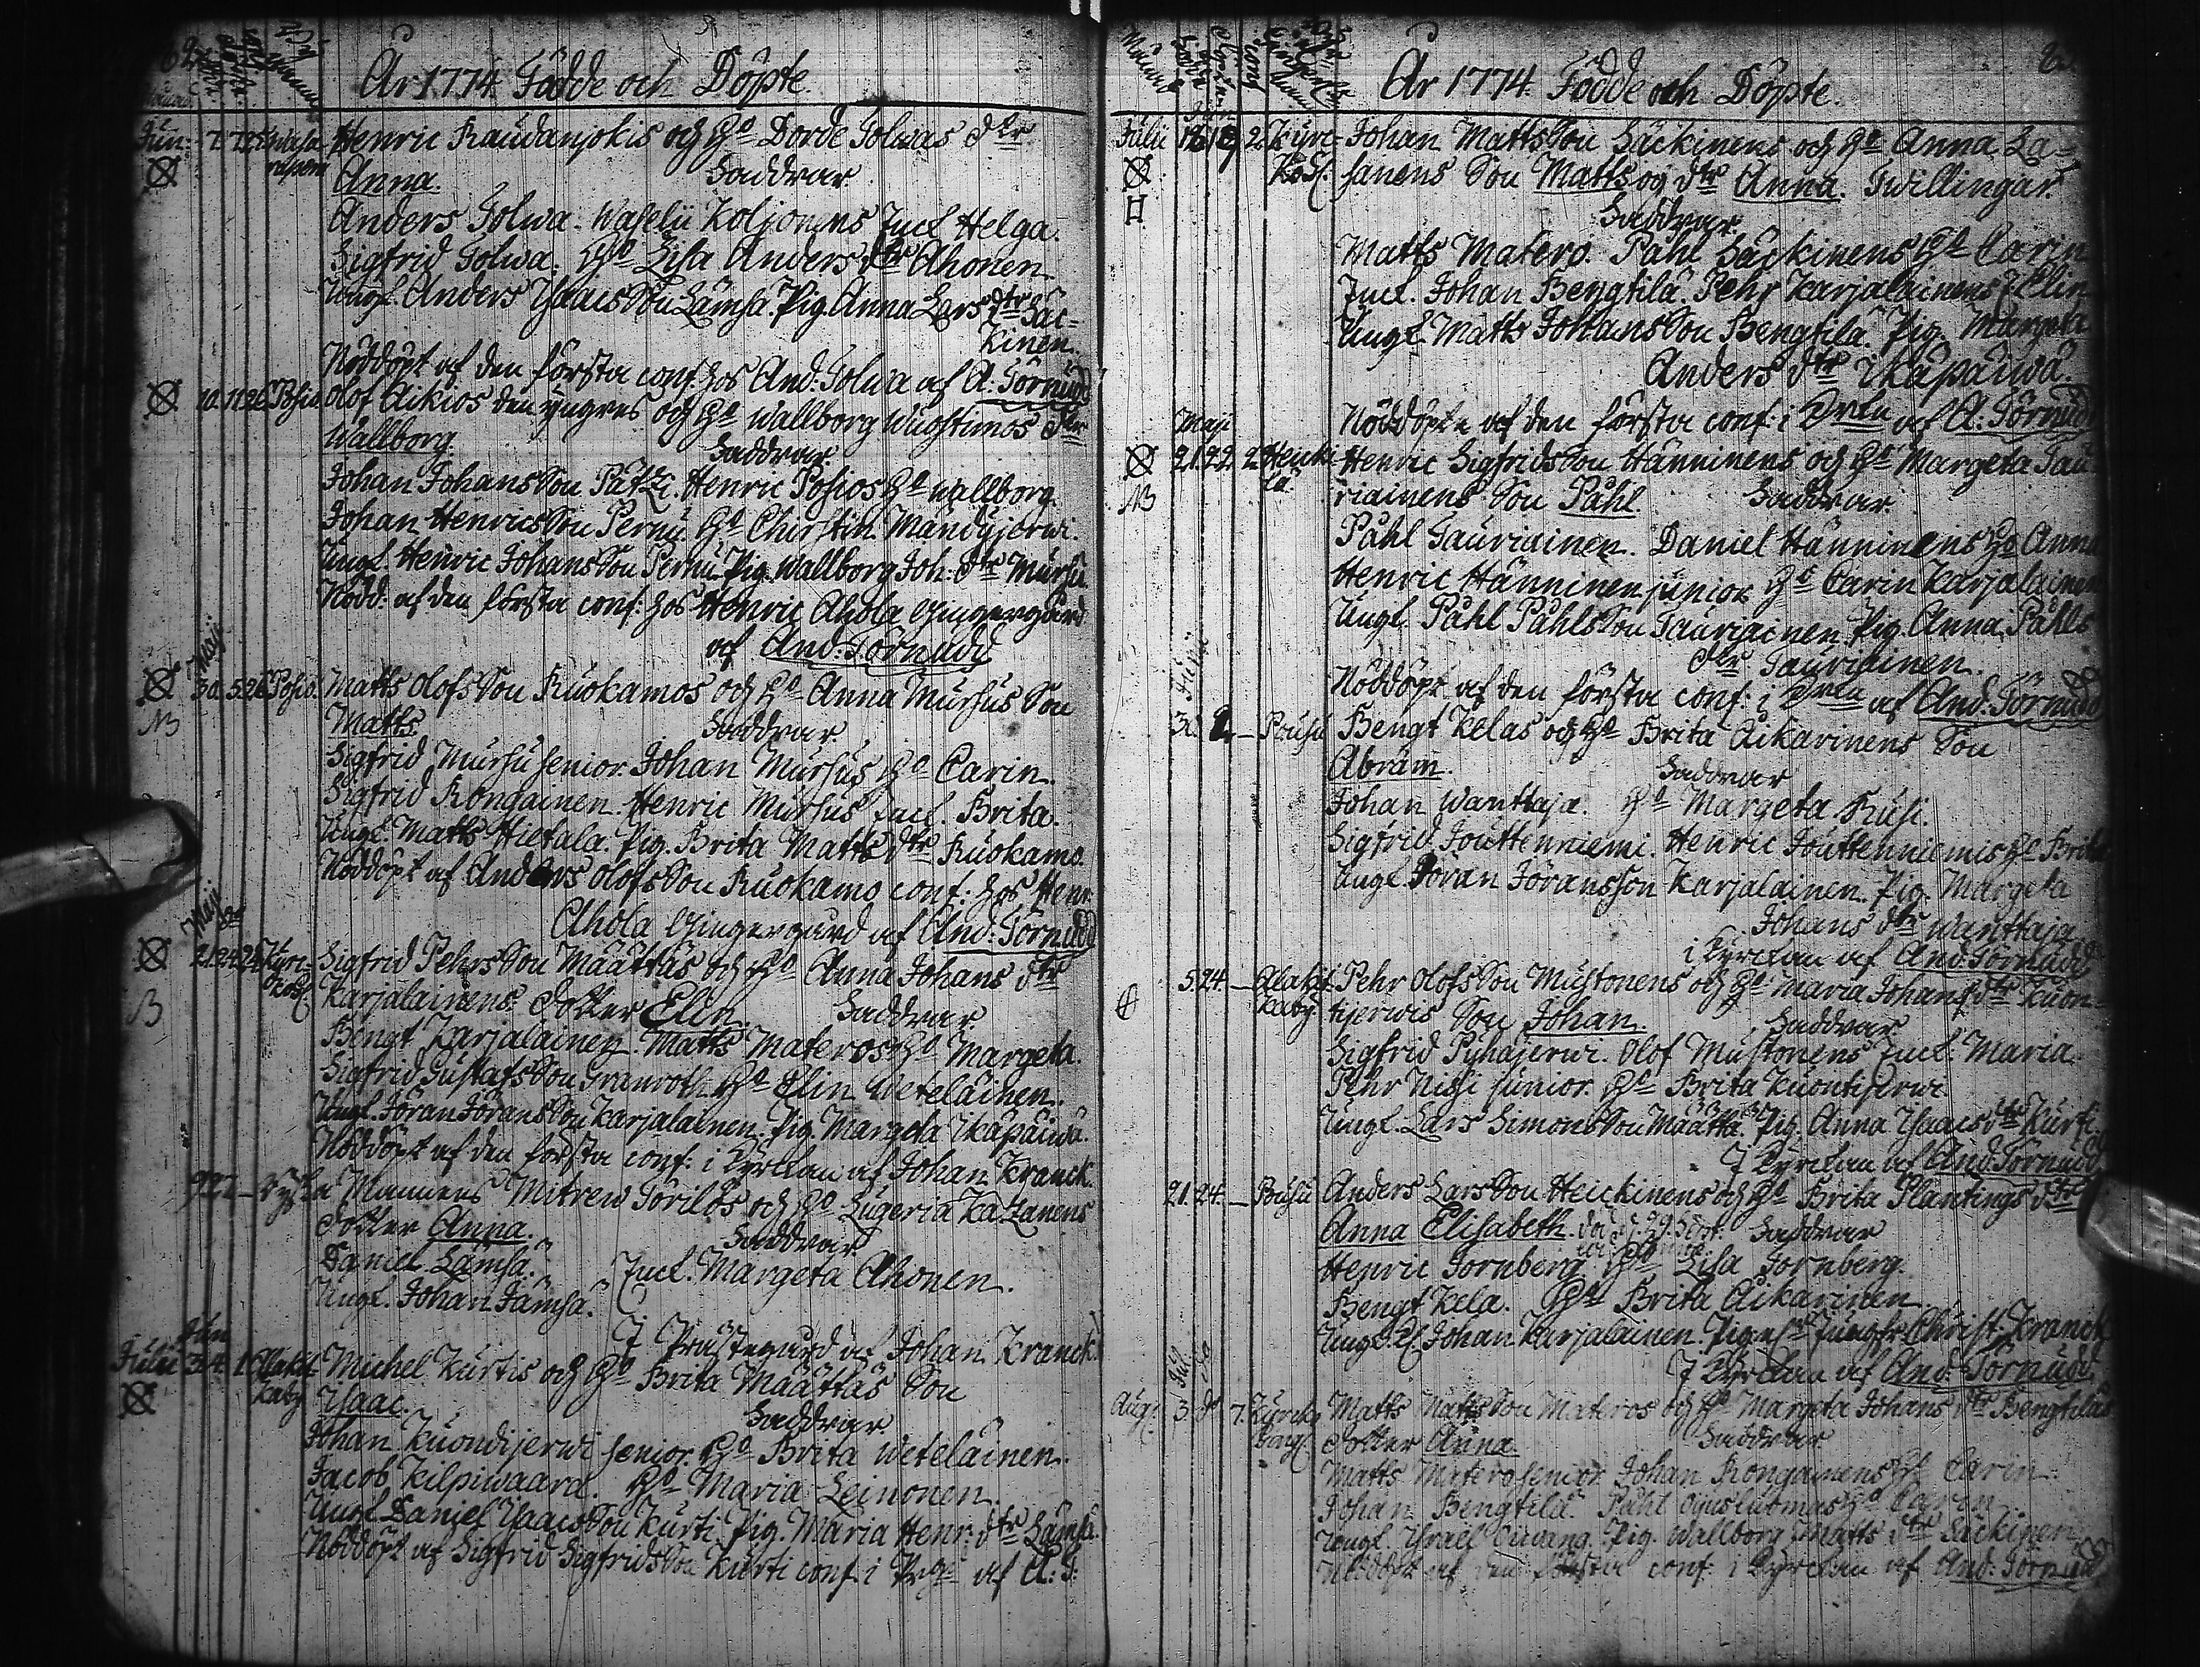 År 1774. Födde och Döpte.
Jun: 7. 12. Henric Raudanjokis och Ho Dorde Tolwas dtr
Anna. Faddrar
Anders Tolwa. Waselii Koljonens Encl. Helga.
Sigfrid Tolwa. Ho Lisa Anders dtr Ahonen.
Ungl. Anders Ysaacs Son Lämsä. Pig. Anna Lars dtr Säc=
kinen.
Nöddöpt af den första conf: hos And: Tolwa af A: Törnudd
10. 11. 26. Posio. Olof Aikios den yngres och Ho Wallborg Wuostimos dtr
Wallborg. Faddrar.
Johan Johans Son Pätzi. Henric Posios Ho Wallborg.
Johan Henrics Son Pernu. Ho Christin Mandyjerwi.
Ungl. Henric Johans Son Pernu. Pig. Wallborg Joh: dtr Mursu
Nödd: af den första conf: hos Henric Ahola Gingergård
af And: Törnudd
Maji
30. 5. 26. Posio. Matts Olofs Son Ruokamos och Ho Anna Mursus Son
NB Matts. Faddrar.
Sigfrid Mursu senior. Johan Mursus Ho Carin.
Sigfrid Kongainen. Henric Mursus Encl. Brita.
Ungl. Matts Hietala. Pig. Brita Matts dtr Ruokamo.
Nöddöpt af Anders Olofs Son Ruokamo conf: hos Henr.
Ahola Gingergård af And: Törnudd
Maji
21. 24. Sigfrid Pehrs Son Määttäs och Ho Anna Johans dtr
Karjalainens dotter Elin. Faddrar.
Bengt Karjalainen. Matts Materos Ho Margeta.
Sigfrid Gustafs Son Granroth. Ho Elin Weteläinen.
Ungl. Jöran Jörans Son Karjalainen. Pig. Margeta Ikäpäiwä.
Nöddöpt af den första conf: i Kyrckan af Johan Kranck.
Mitrew Törilös och Ho Lugeria Katzanens
dotter Anna. Faddrar
Daniel Lämsä. Encl. Margeta Ahonen.
Ungl. Johan Jämsä.
I Prästegård af Johan Kranck.
Julii 3. 4. Michel Kurtis och Ho Brita Määttäs Son
Ysaac. Faddrar
Johan Kuondijerwi senior. Ho Brita Weteläinen.
Jacob Kilpiwaara. Ho Maria Leinonen.
Ungl. Daniel Ysaacs Son Kurti. Pig. Maria Henr: dtr Lämsä.
Nöddöpt af Sigfrid Sigfrids Son Kurti conf. i Prg: af A: T:
År 1774. Födde och Döpte.
Julii Johan Matts Son Säckinens och Ho Anna La=
sanens Son Matts og dtr Anna. Twillingar.
Faddrar.
Matts Matero. Pahl Säckinens Ho Carin
Encl. Johan Bengtilä. Pehr Karjalainens E: Elin
Ungl. Matts Johans Son Bengtilä. Pig. Margeta
Anders dtr Ikäpäiwä.
Nöddöpte af den första conf: i af A: Törnudd
Maji
21. 22. 2. Henric Sigfrids Son Hänninens och Ho Margeta Tau
NB riainens Son Påhl. Faddrar.
Påhl Tauriainen. Daniel Hänninens Ho Anna
Henric Hänninen junior. Ho Carin Karjalainen
Ungl. Påhl Påhls Son Tauriainen. Pig. Anna Påhls
dtr Tauriainen.
Nöddöpt af den första conf: i af And: Törnudd
Bengt Kelas och Ho Brita Aikarinens Son
Abram. Faddrar
Johan Wanttaja. Ho Margeta Rusi.
Sigfrid Jouttenniemi. Henric Jouttenniemis Ho Brita
Ungl. Jöran Jöransson Karjalainen. Pig. Margeta
Johans dtr Wanttaja
i Kyrckan af And: Törnudd
5. 24. Pehr Olofs Son Mustonens och Ho Maria Johans dtr Kuon=
tijerwis Son Johan. Faddrar
Sigfrid Pyhäjerwi. Olof Mustonens Encl. Maria.
Pehr Nissi junior. Ho Brita Kuontijerwi
Ungl. Lars Simons Son Määttä. Pig. Anna Ysaacs dtr Kurti.
I Kyrckan af And: Törnudd
21. 24. Anders Lars Son Heickinens och Ho Brita Plantings dtr
Anna Elisabeth. Faddrar
Henric Fornberg Ho Lisa Fornberg.
Bengt Kela. Ho Brita Aikarinen
Johan Karjalainen. Christ. Kranck
I Kyrckan af And: Törnudd
Aug: 3. 7. Matts Matts Son Materos och Ho Margeta Johans dtr Bengtiläs
dotter Anna. Faddrar
Matts Matero senior. Johan Kongainens Ho Carin.
Johan Bengtilä. Påhl Ho Carin
Ungl. Ysrael Pig. Wallborg Matts dtr Säckinen
Nöddöpt af den första conf: i Kyrckan af And: Törnudd